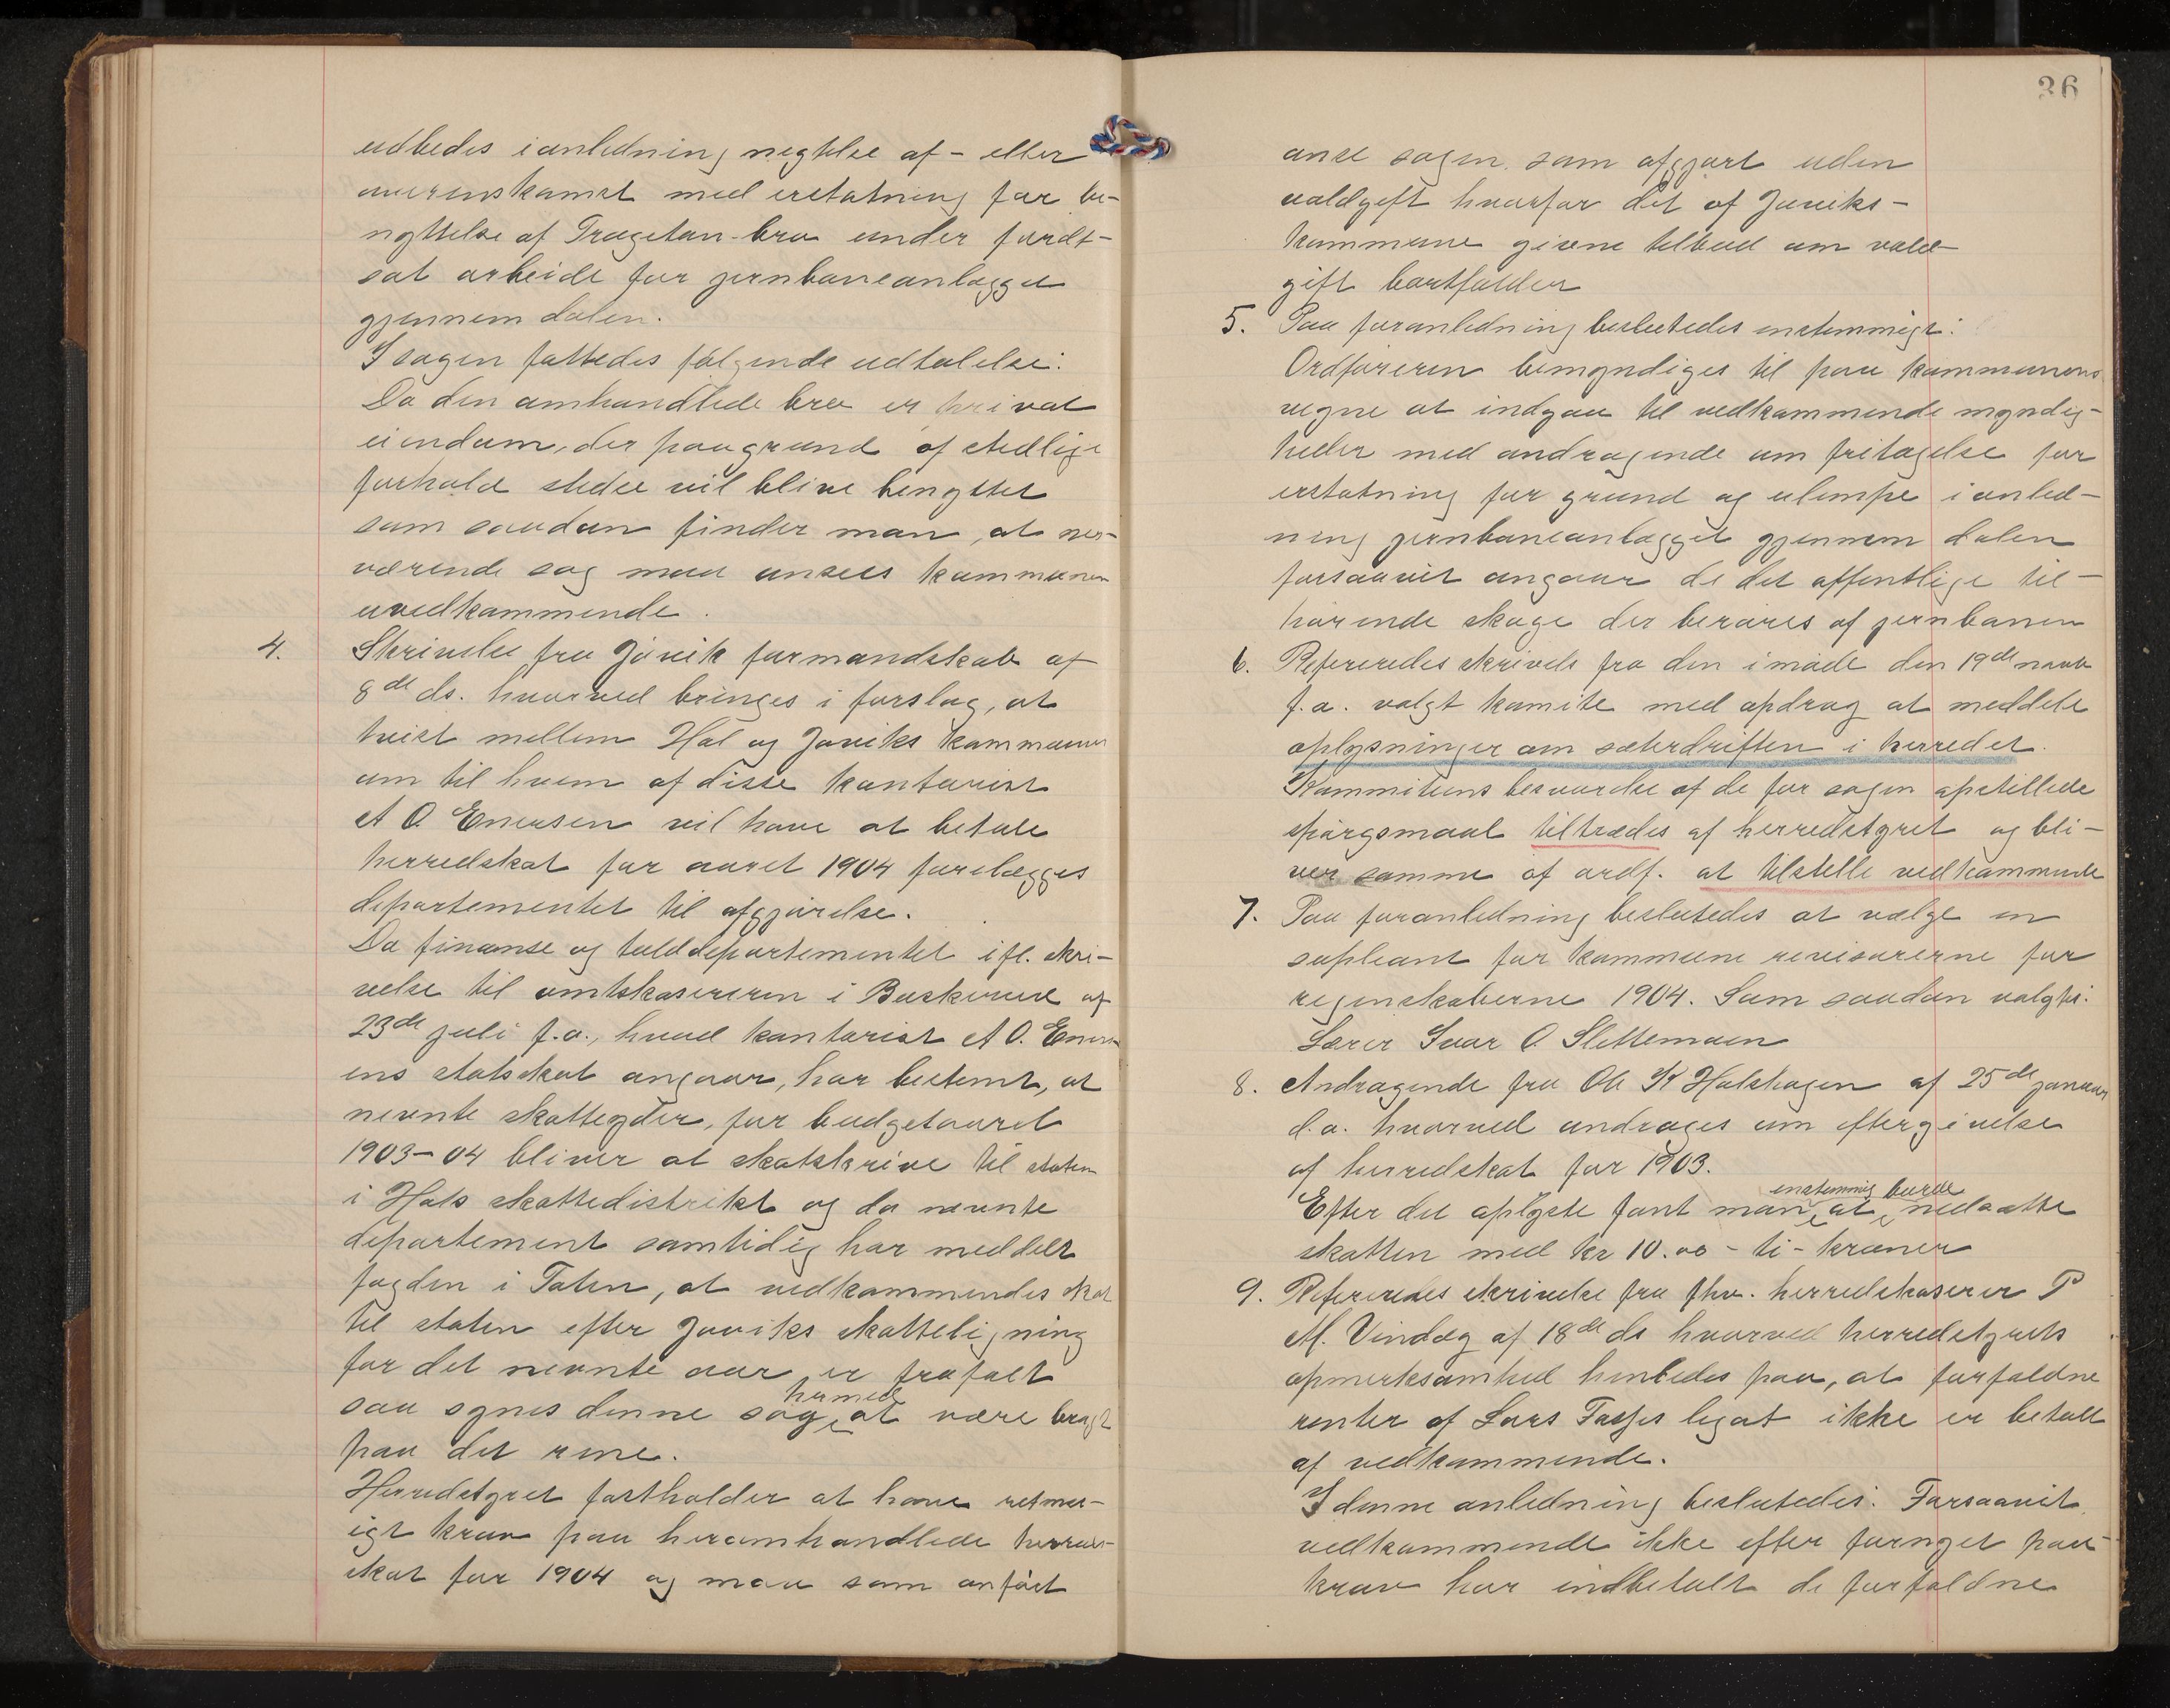 udbedes i anledning negtelse af - eller
overenskomst med erstatning for be-
nyttelse af Tragetonbro under fordt-
sat arbeide for jernbaneanlægget
gjennem dalen.
I sagen fattedes følgende udtalelse:
Da den omhandlede bro er privat
eiendom, der paa grund af stedlige
forhold stedse vil blive benyttet
som saadan finder man, at nær-
værende sag maa ansees kommunen
uvedkommende.
4. Skrivelse fra Gjøvik formandskab af
8de ds. hvorved bringes i forslag, at
tvist mellem Hol og Gjøviks kommuner
om til hvem af disse kontorist
A O. Enersen vil have at betale
herredskat for aaret 1904 forelægges
departementet til afgjørelse.
Da finanse og tolddepartementet ifl. skri-
velse til amtskasereren i Buskerud af
23de juli f.a., hvad kontorist A O. Eners-
ens statsskat angaar, har bestemt, at
nevnte skatteyder, for budgetaaret
1903-04 bliver at skatskrive til staten
i Hols skattedistrikt og da nevnte
departement samtidig har meddelt
fogden i Toten, at vedkommendes skat
til staten efter Gjøviks skatteligning
for det nevnte aar er frafalt
saa synes denne sag hermed at være bragt
paa det rene.
Herredstyret fastholder at have retmes-
igt krav paa heromhandlede herreds-
skat for 1904 og maa som anført
36
anse sagen som afgjort uden
voldgift hvorfor det af Gjøviks-
kommune givne tilbud om vold-
gift bortfalder
5. Paa foranledning besluttedes enstemmigt:
Ordføreren bemyndiges til paa kommunens
vegne at indgaa til vedkommende myndig-
heder med andragende om fritagelse for
erstatning for grund og ulempe i anled-
ning jernbaneanlægget gjennem dalen
forsaavit angaar de det offentlige til-
hørende skoge der berøres af jernbanen
6. Refereredes skrivels fra den i møde den 19de novb
f.a. valgt komite med opdrag at meddele
oplysninger om sæterdriften i herredet.
Kommiteens besvarelse af de for sagen opstillede
spørgsmaal tiltrædes af herredstyret og bli-
ver samme af ordf. at tilstelle vedkommende
7. Paa foranledning besluttedes at vælge en
supleant for kommune revisorerne for
regnskaberne 1904. Som saadan valgtes:
Lærer Ivar O Slettemoen
8. Andragende fra Ole K Holshagen af 25de januar
d.a. hvorved andrages om eftergivelse
af herredskat for 1903.
Efter det oplyste fant man enstemmig at burde nedsætte
skatten med kr 10.00 - ti - kroner
9. Refereredes skrivelse fra fhv. herredskaserer P
M. Vindeg af 18de ds hvorved herredstyrets
opmerksomhed henledes paa, at forfaldne
renter af Lars Fosses legat ikke er betalt
af vedkommende.
I denne anledning besluttedes: Forsaavit
vedkommende ikke efter fornyet paa-
krav har indbetalt de forfaldne